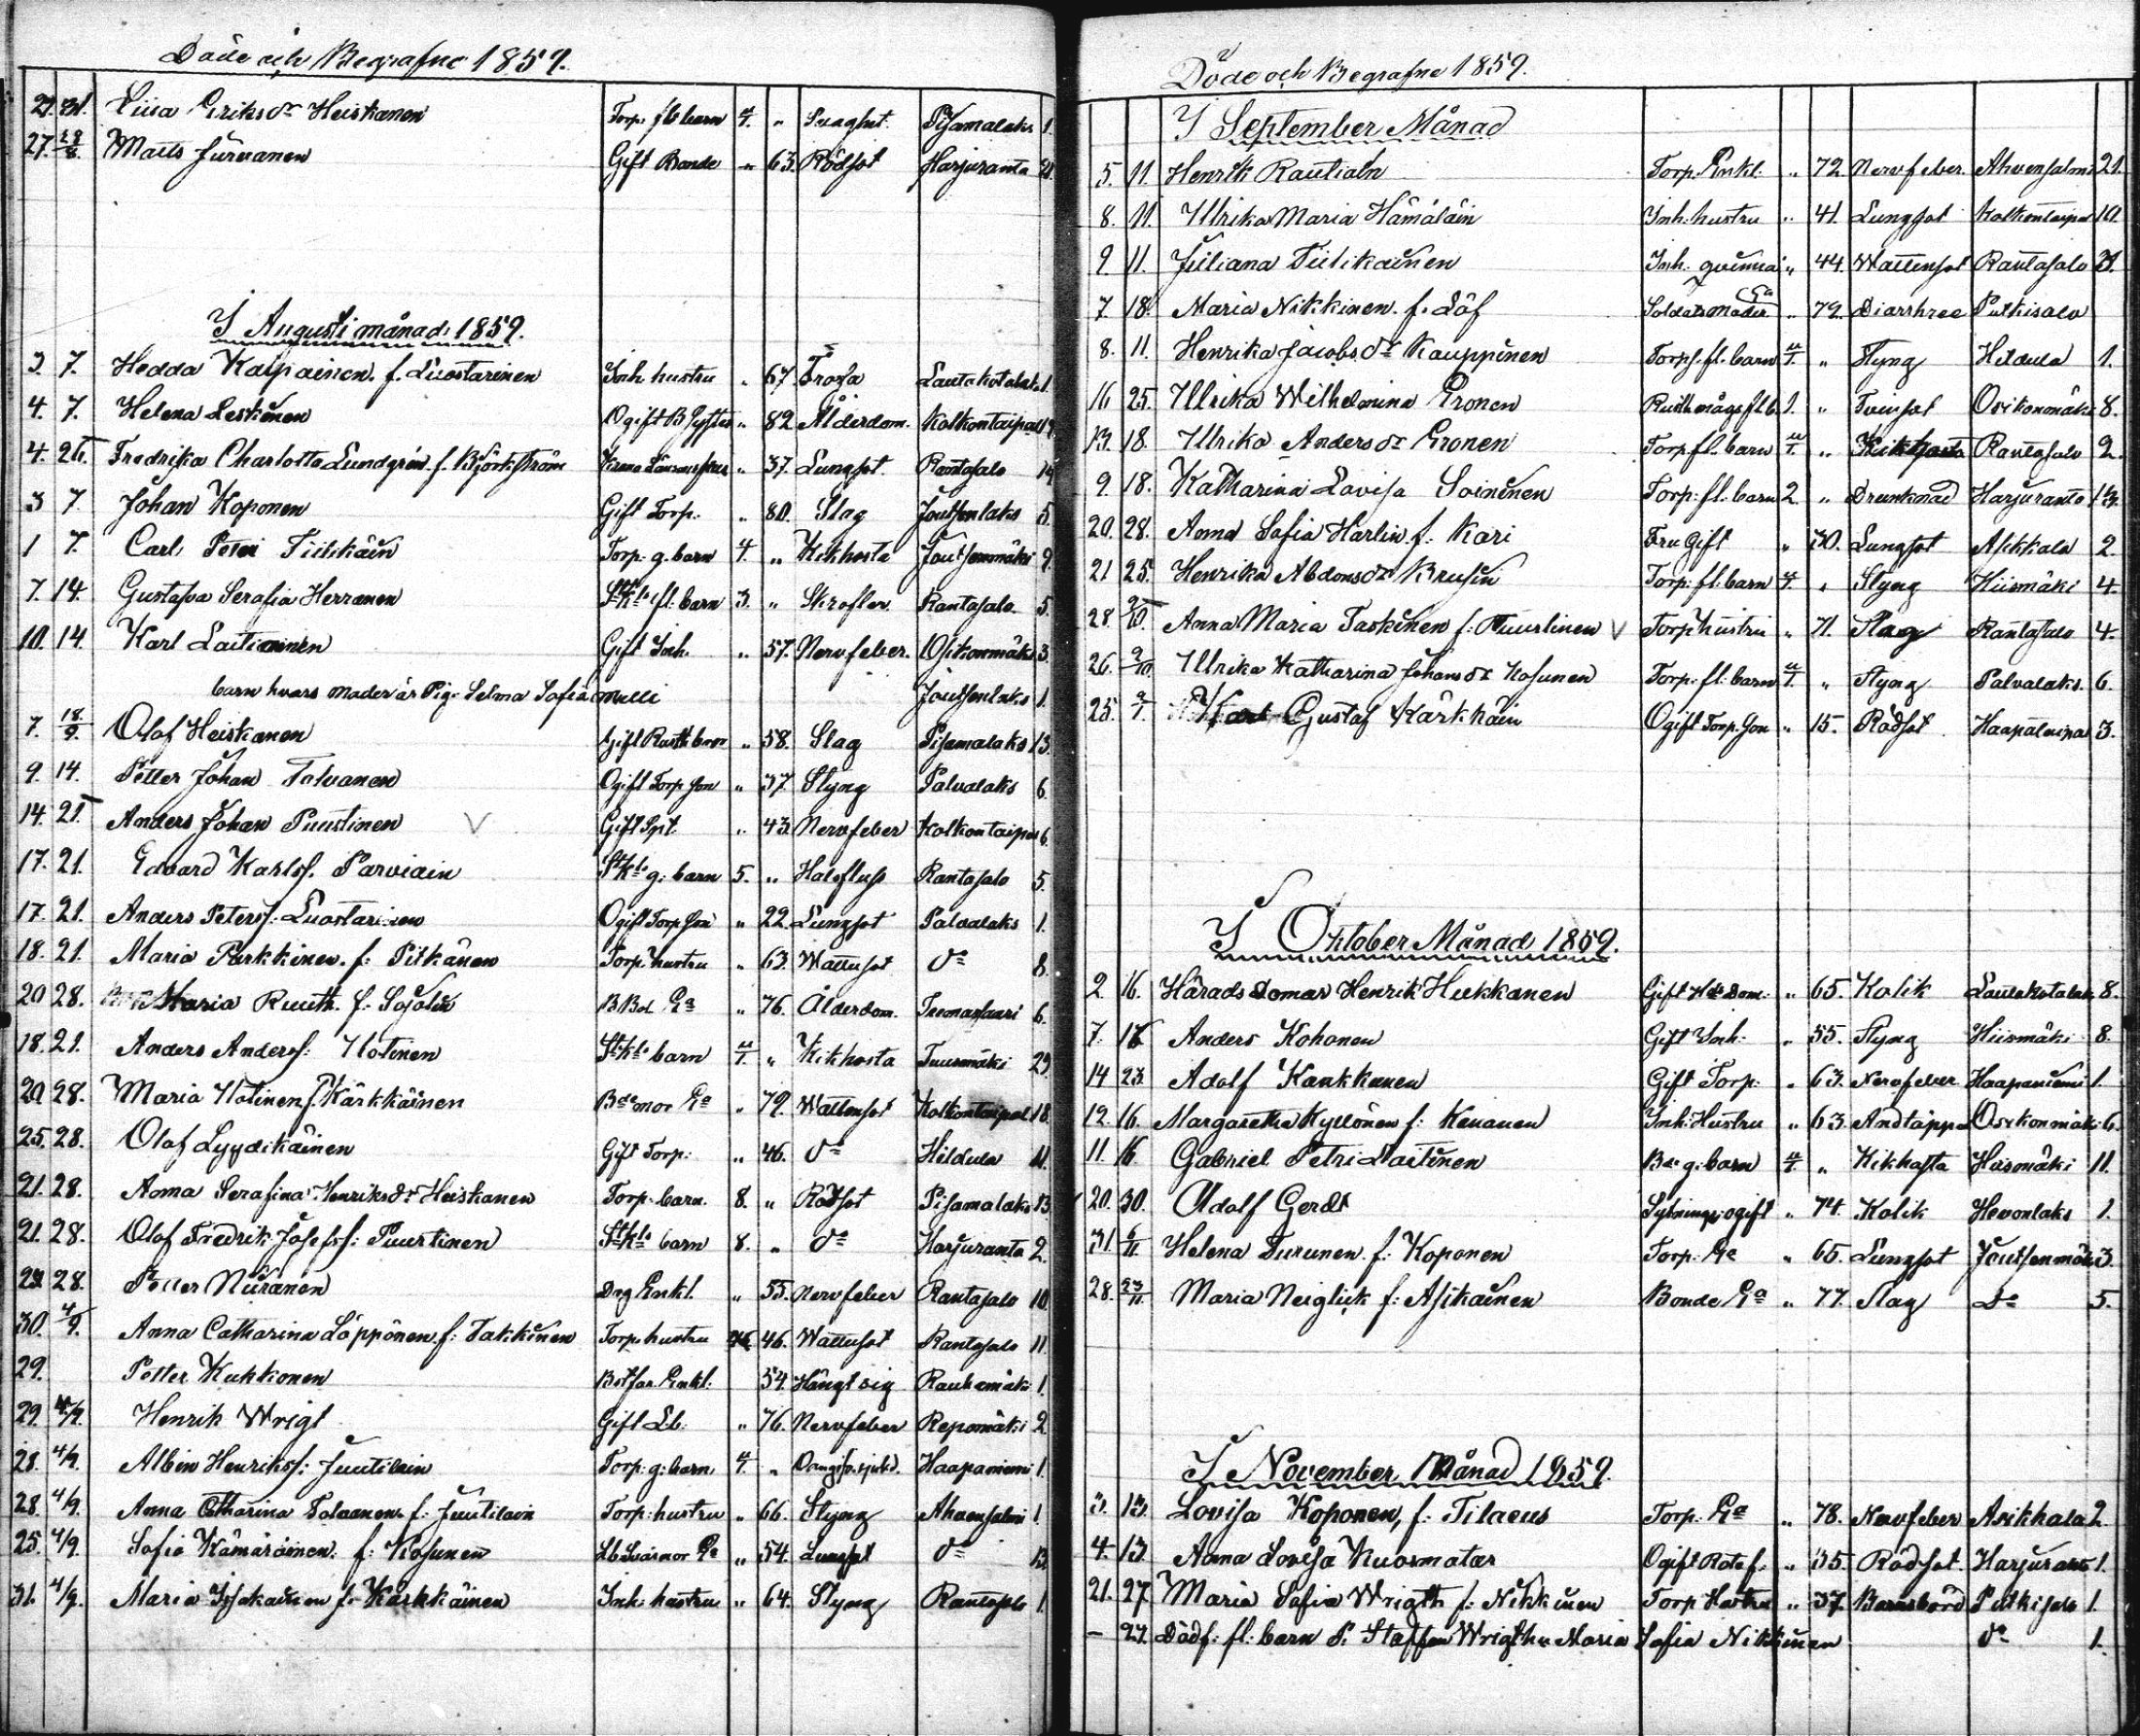 Döde och Begrafne 1859.
27. 31. Liisa Eriksdr Heiskanen Torp. fl barn u/1. " Pisamalaks 1.
27. 28/8. Matts Jurvanen Gift Bonde " 63. Rödsot Harjuranta 21.
I Augusti månad 1859.
3. 7. Hedda Kaipainen. f. Luostarinen Inh hustru " 67. Frossa Lautakotalaks 1.
4. 7. Helena Leskinen Ogift B Syster " 82. Ålderdom. Kolkontaipal 19.
4. 21. Fredrika Charlotta Lundgrén f. Björkström " 37. Lungsot. Rantasalo 14
3 7. Johan Koponen Gift Torp. " 80. Slag Joutsenlaks 5.
1 7. Carl Petri Tiihkäin Torp. g. barn 4. " Kikhosta Joutsenmäki 9.
7. 14. Gustafva Serafia Herranen fl. barn 3. " Skroflar Rantasalo 5.
10. 14. Karl Laitinen Gift Inh. " 57. Nervfeber. Osikonmäki 3.
barn hvars moder är Pig. Selma Sofia Mulli Joutsenlaks 1.
7. 18/9. Olof Heiskanen Gift Rusth bror " 58. Slag Pisamalaks 13.
9. 14. Petter Johan Talvanen Ogift Torp son " 37. Styng Palvalaks 6.
14. 21. Anders Johan Puustinen V Gift Spit " 43. Nervfeber Kolkontaipal 6.
17. 21. Edvard Karlss. Parviain g: barn 5. " Halsfluss Rantasalo 5.
17. 21. Anders Peterss. Luostarinen Ogift Torp son " 22. Lungsot Palvalaks 1.
18. 21. Maria Parkkinen. f: Pitkänen Torp. hustru " 63. Wattusot do 8.
20 28. Maria Ruuth. f: Enka " 76. Ålderdom. 6.
18. 21. Anders Anderss: Hotinen barn u/1. " Kikhosta Tuusmäki 29.
20. 28. Maria Hotinen f. Kärkkäinen Bdemor Ea " 79. Wattensot Kolkontaipal 18.
25. 28. Olof Lyydikäinen Gift Torp: " 46. do Hildula 11.
21. 28. Anna Serafina Henriksdr Heiskanen Torp. barn. 8. " Rödsot Pisamalaks 13.
21. 28. Olof Fredrik Josefss: Puustinen barn 8. " do Harjuranta 2.
28. Petter Niiranen Drg Enkl. " 55. Nervfeber Rantasalo 10.
30. 4/9. Anna Catharina Löppönen f: Takkinen Torp. hustru 46. Wattusot Rantasalo 11.
29. Petter Kukkonen Enkl. 54. Hängt sig Rauhamäki 1.
29. 4/9. Henrik Wrigt Gift Lb: " 76. Nervfeber Repomäki 2.
28. 4/9. Albin Henrikss: Juutilain Torp. g: barn u/1. " Haapaniemi 1.
28. 4/9. Anna Catharina Talvanen f: Juutilain Torp. hustru " 66. Styng Ahvensalmi 1.
25. 4/9. Sofia Kämäräinen. f: Kosunen Lb Svärmor Ea " 54. Lungsot do 13.
31. 4/9. Maria f. Kärkkäinen Inh: hustru " 64. Styng Rantasalo 1.
Döde och Begrafne 1859.
I September Månad
5. 11. Henrik Rautiain Torp. Enkl. " 72. Nervfeber. Ahvensalmi 21.
8. 11. Ulrika Maria Hämäläin Inh: hustru " 41. Lungsot Kolkontaipal 10.
9. 11. Juliana Tiilikainen Inh. qvinna " 44. Wattensot Rantasalo 21.
7. 18. Maria Nikkinen. f. Löf Soldatsmoder Ea " 79. Diarrhree Putkisalo
8. 11. Henrika Jacobsdr Kauppinen Torps. fl. barn u/1. " Styng Hildula 1.
16 25. Ulrika Wilhelmina Eronen 1. " Tvinsot Osikonmäki 8.
13. 18. Ulrika Andersdr Eronen Torp fl. barn u/1. " Kikhosta Rantasalo 2.
9. 18. Katharina Lovisa Soininen Torp: fl: barn 2. " Drunknad Harjuranta 13.
20. 28. Anna Sofia Harlin f: Kari Fru Gift " 30. Lungsot Asikkala 2.
21 25. Henrika Abdonsdr Brusin Torp: fl: barn u/1. " Styng Hiismäki 4.
28. 2/10. Anna Maria Taskinen f: Puustinen V Torp hustru " 71. Slag Rantasalo 4.
26. 2/10. Ulrika Katharina Johansdr Kosunen Torp: fl: barn u/1. " Styng Palvalaks. 6.
25. Karl Gustaf Kärkkäin Ogift Torp. son " 15. Rödsot Haapataipal 3.
I Oktober Månad 1859.
2. 16. Härads Domar Henrik Hukkanen Gift Hds Dom: " 65. Kolik Lautakotalaks 8.
7. 16 Anders Kohonen Gift Inh: " 55. Styng Hiismäki 8.
14 23. Adolf Kankkunen Gift Torp: " 63. Nervfeber Haapaniemi 1.
12. 16. Margaretha Kyllönen f: Kenanen Inh: Hustru " 63. Andtäppa Osikonmäki 6.
11. 16. Gabriel Petri Laitinen Bde g: barn u/1. " Kikhosta Hiismäki 11.
20. 30. Adolf Gerdt Sytning: ogift " 74. Kolik Hevonlaks 1.
31. 6/11. Helena Turunen f: Koponen Torp. Ea " 65. Lungsot Joutsenmäki 3.
28. 23/11. Maria Neiglick f: Asikainen Bonde Ea " 77. Slag Do 5.
I November Månad 1859.
3. 13. Lovisa Koponen, f: Tilaeus Torp: Ea " 78. Nervfeber Asikkala 2.
4. 13. Anna Lovisa Kuosmatar Ogift " 35. Rödsot Harjuranta 1.
21. 27. Maria Sofia Wrigth f: Nikkinen Torp Hustru " 37. Barnsbörd Putkisalo 1.
– 27. Dödf: fl: barn P. Staffan Wrigth u Maria Sofia Nikkinen do 1.